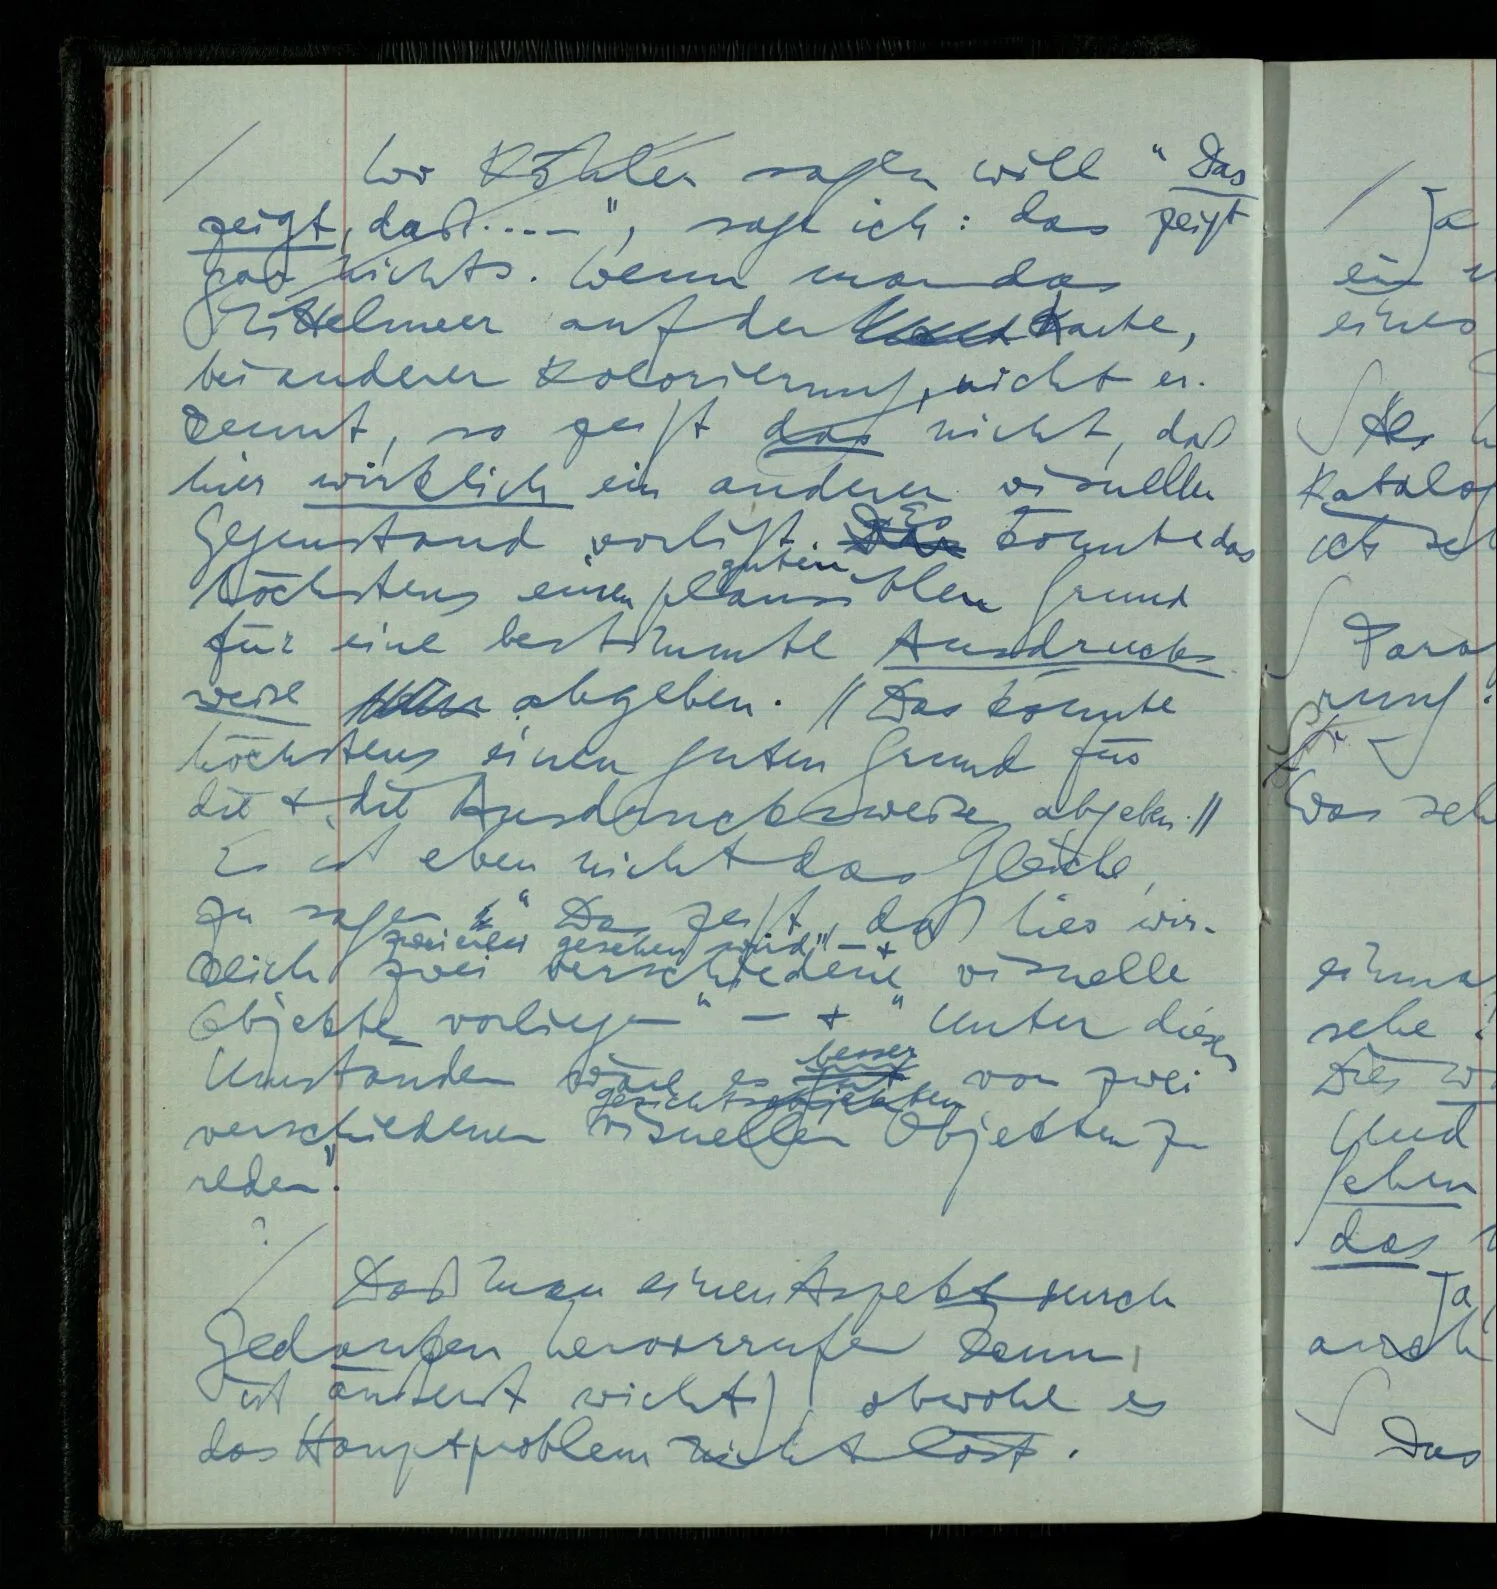 / Wo Köhler sagen will "Das
zeigt, daß....–", sage ich: das zeigt
gar nichts. Wenn man das
Mittelmeer auf der Karte,
bei anderer Kolorierung, nicht er-
kennt, so zeigt das nicht, daß
hier wirklich ein anderer visueller
Gegenstand vorliegt. Es könnte das
guten
höchstens einen plausiblen Grund
für eine bestimmte Ausdrucks-
weise abgeben. // Das könnte
höchstens einen guten Grund für
die & die Ausdrucksweise abgeben. //
Es ist eben nicht das Gleiche,
zu sagen "Das zeigt, daß hier wir-
zweierlei gesehen wird" – &
klich zwei verschiedene visuelle
Objekte vorliegen" – & "Unter diesen
besser
Umständen wäre es gut von zwei
Gesichtsobjekten
verschiedenen visuellen Objekten zu
reden".
?
/ Daß man einen Aspekt durch
Gedanken hervorrufen kann,
ist äußerst wichtig, obwohl es
das Hauptproblem nicht löst.
/ Ja
ein
eines
Als
Katalog
ich
einma
sehe
Dies
Und
sehen
das
Ja
auch
Das